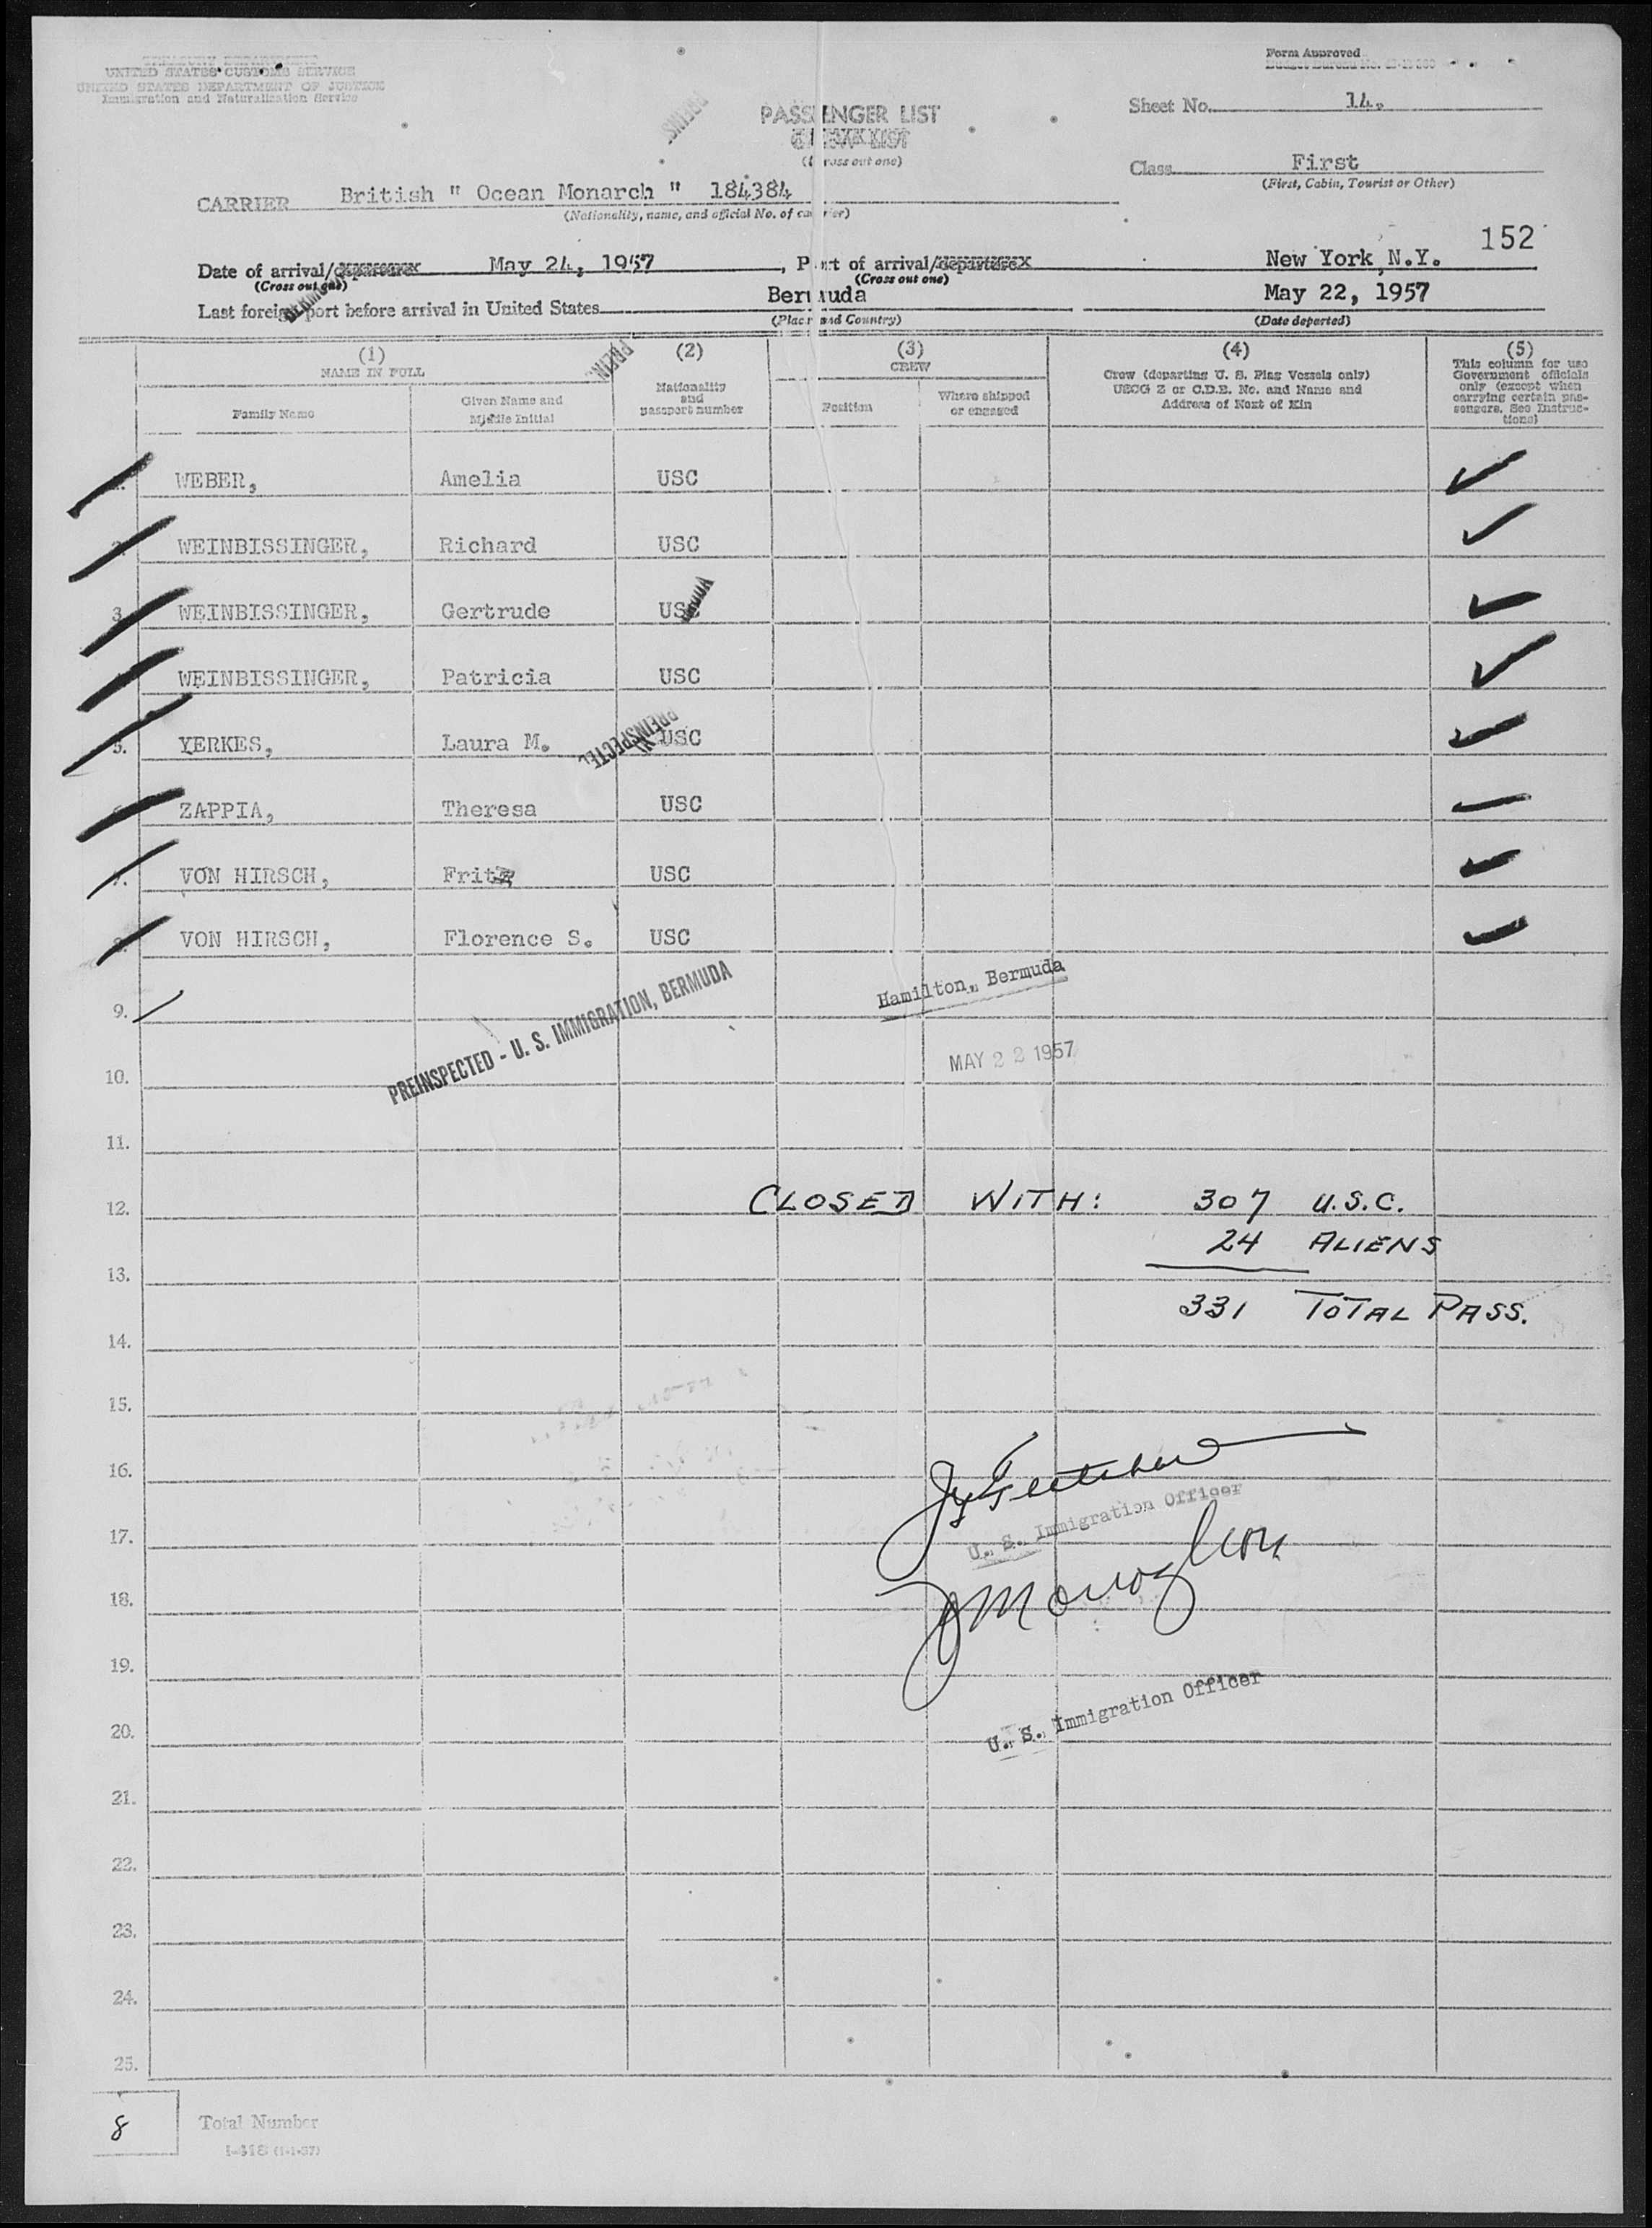 TREASURY DEPARTMENT
UNITED STATES CUSTOMS SERVICE
UNITED STATES DEPARTMENT OF JUSTICE
Immigration and Naturalization Service
Form Approved
Sheet No. 14.
PASSENGER LIST
CREW LIST
(Cross out one)
Class First
(First, Cabin, Tourist or Other)
CARRIER British " Ocean Monarch " 184384
(Nationality, name, and official No. of carrier)
152
Date of arrival/departure May 24, 1957, Port of arrival/departure New York, N.Y.
(Cross out one) (Cross out one)
Last foreign port before arrival in United States Bermuda May 22, 1957
(Place and Country) (Date departed)
(1) (2) (3) (4) (5)
NAME IN FULL
Family Name
Given Name and Middle Initial
Nationality and passport number
CREW
Position
Where shipped or engaged
Crew (departing U. S. Flag Vessels only)
USCG Z or C.D.B. No. and Name and
Address of Next of Kin
This column for use
Government officials
only (except when
carrying certain pas-
sengers. See Instruc-
tions)
WEBER, Amelia USC
WEINBISSINGER, Richard USC
3. WEINBISSINGER, Gertrude USC
WEINBISSINGER, Patricia USC
5. YERKES, Laura M. USC
PREINSPECTED
ZAPPIA, Theresa USC
7. VON HIRSCH, Fritz USC
VON HIRSCH, Florence S. USC
PREINSPECTED - U. S. IMMIGRATION, BERMUDA
Hamilton, Bermuda
9.
MAY 22 1957
10.
11.
12. CLOSED WITH: 307 U.S.C.
24 ALIENS
13.
331 TOTAL PASS.
14.
15.
16.
U. S. Immigration Officer
17.
18.
19.
U. S. Immigration Officer
20.
21.
22.
23.
24.
25.
8 Total Number
I-418 (1-1-57)